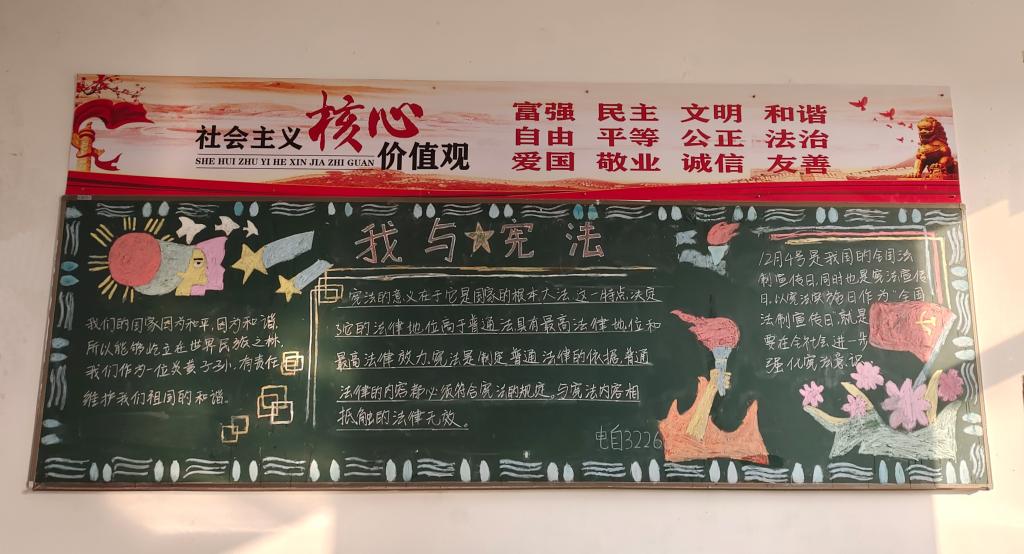 社会主义核心价值观
SHE HUI ZHU YI HE XIN JIA ZHI GUAN
富强 民主 文明 和谐
自由 平等 公正 法治
爱国 敬业 诚信 友善
我与宪法
我们的国家因为和平,因为和谐,
所以能够屹立在世界民族之林,
我们作为一位炎黄子孙,有责任
维护我们祖国的和谐。
宪法的意义在于它是国家的根本大法,这一特点,决定
它的法律地位高于普通法具有最高法律地位和
最高法律效力,宪法是制定普通法律的依据,普通
法律的内容都必须符合宪法的规定。与宪法内容相
抵触的法律无效。
12月4号是我国的全国法
制宣传日,同时也是宪法宣传
日,以宪法实施日作为全国
法制宣传日,就是
要在全社会,进一步
强化宪法意识。
电自3226